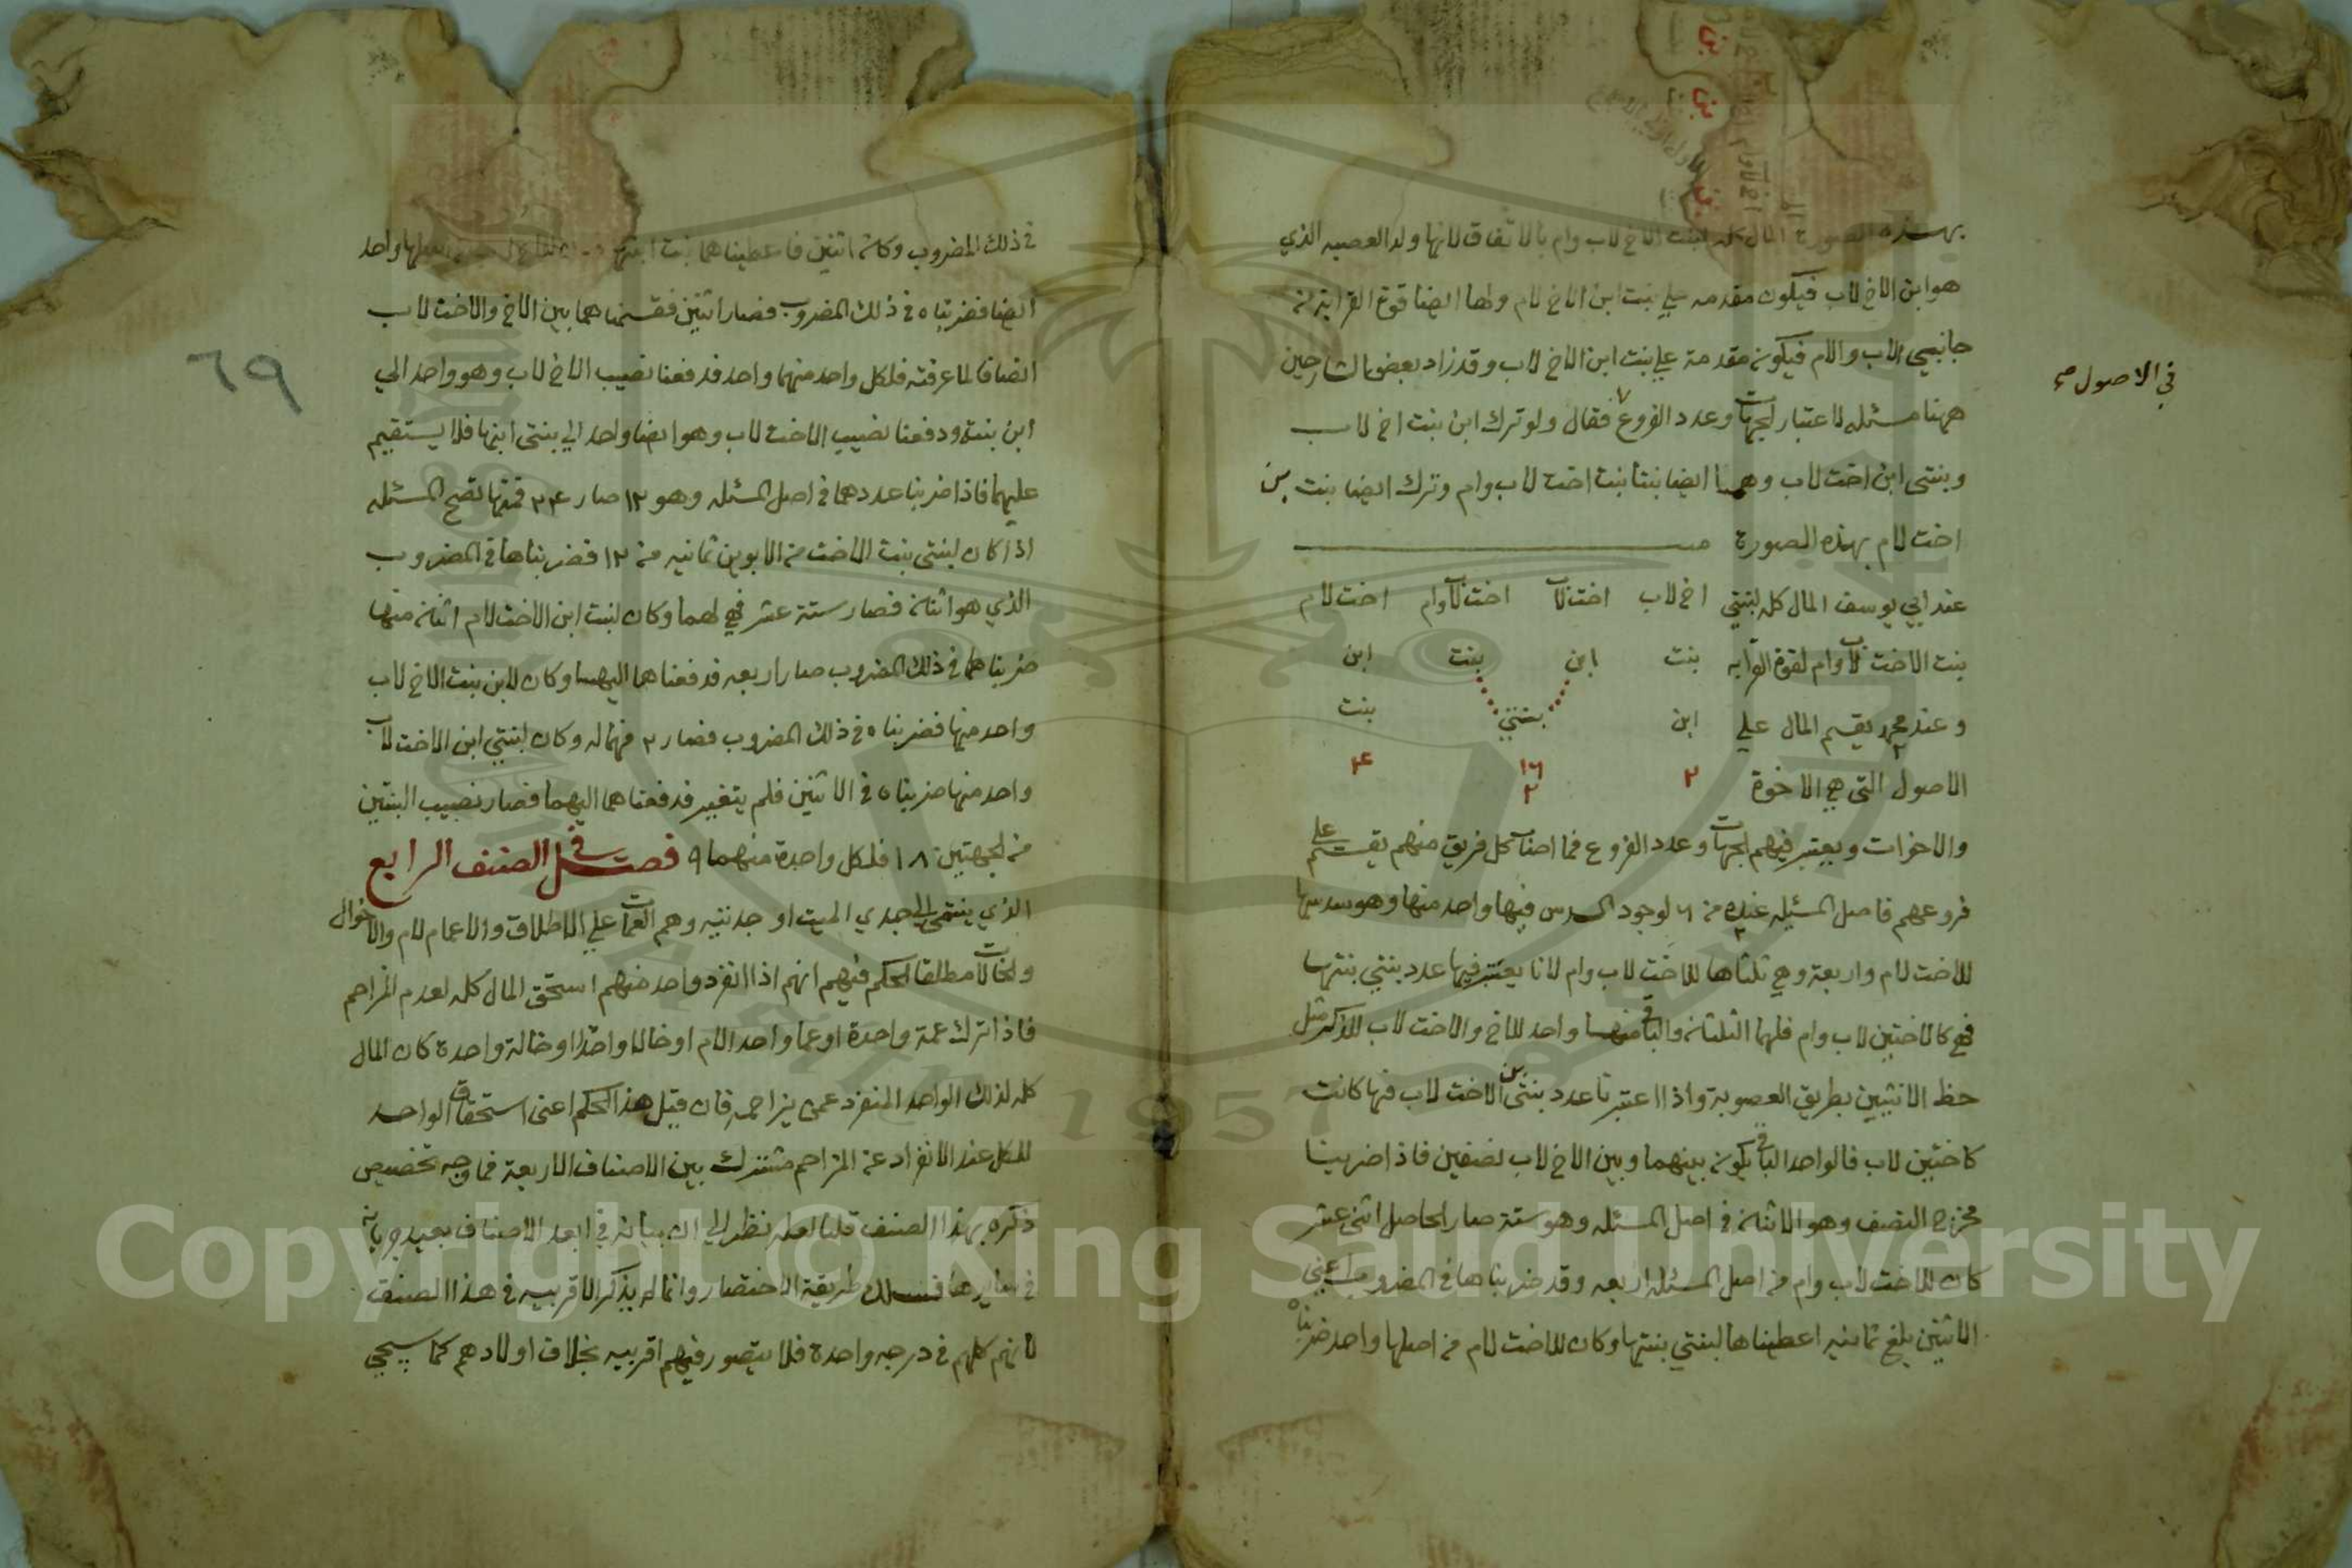 بهذه الصورة المال كله لبنت ابن الاخ لاب وام بالاتفاق لانها ولد العصبه الذي
هو ابن الاخ لاب فيكون مقدمه علي بنت ابن الاخ لام ولها ايضا قوة القرابة من
جانبي الاب والام فيكون مقدمة علي بنت ابن الاخ لاب وقد زاد بعض الشارحين
ههنا مسئله لاعتبار الجهات وعدد الفروع فقال ولو ترك ابن بنت اخ لاب
في الاصول صح
وبنتي ابن اخت لاب وهما ايضا بنتا بنت اخت لاب وام وترك ايضا بنت بن
اخت لام بهذه الصورة
عند ابي يوسف المال كله لبنتي اخ لاب اخت لاب اخت لاب وام اخت لام
بنت الاخت لاب وام لقوة القرابه بنت ابن بنت ابن
وعند محمد يقسم المال علي ابن بنتي بنت
الاصول التي هي الاخوة ٢ ١٦ ٢ ٤
والاخوات ويعتبر فيهم الجهات وعدد الفروع فما اصاب كل فريق منهم يقسم على
فروعهم فاصل المسئله عنده من ٦ لوجود السدس فيها واحد منها وهو سدسها
للاخت لام واربعة وهي ثلثاها للاخت لاب وام لانا يعتبر فيها عدد بنتي بنتها
فهي كالاختين لاب وام فلهما الثلثان والباقي منها واحد للاخ والاخت لاب للذكر مثل
حظ الانثيين بطريق العصوبة واذا اعتبرنا عدد بنتي بن الاخت لاب فيها كانت
كاختين لاب فالواحد الباقي يكون بينهما وبين الاخ لاب نصفين فاذا ضربنا
مخرج النصف وهو الاثنان في اصل المسئله وهو ستة صار الحاصل اثني عشر
كان للاخت لاب وام من اصل المسئله اربعه وقد ضربناها في المضروب اعني
الاثنين يبلغ ثمانيه اعطيناها لبنتي بنتها وكان للاخت لام من اصلها واحد ضربناه
٦٩
في ذلك المضروب وكان اثنين فاعطيناهما بنت ابنها واحد
ايضا فضربناه في ذلك المضروب فصار اثنين فقسمناهما بين الاخ والاخت لاب
انصافا لما عرفته فلكل واحد منهما واحد فدفعنا نصيب الاخ لاب وهو واحد الي
ابن بنته ودفعنا نصيب الاخت لاب وهو ايضا واحد الي بنتي ابنها فلا يستقيم
عليهما فاذا ضربنا عددهما في اصل المسئله وهو ١٢ صار ٢٤ فمنها تصح المسئله
اذا كان لبنتي بنت الاخت من الابوين ثمانيه من ١٢ فضربناها في المضروب
الذي هو اثنان فصار ستة عشر فهي لهما وكان لبنت ابن الاخت لام اثنان منها
ضربناهما في ذلك المضروب صار اربعه فدفعناهما اليها وكان لابن بنت الاخ لاب
واحد منها فضربناه في ذلك المضروب فصار ٢ فهما له وكان لبنتي ابن الاخت لاب
واحد منها ضربناه في الاثنين فلم يتغير فدفعناهما اليهما فصار نصيب البنتين
من الجهتين ١٨ فلكل واحدة منهما ٩ فصل في الصنف الرابع
الذي ينتمي الى جدي الميت او جدتيه وهم العمات علي الاطلاق والاعمام لام والاخوال
والخالات مطلقا الحكم فيهم انهم اذا انفرد واحد منهم استحق المال كله لعدم المزاحم
فاذا ترك عمة واحدة او عما واحدا لام او خالا واحدا او خالة واحدة كان المال
كله لذلك الواحد المنفرد عمن يزاحمه فان قيل هذا الحكم اعني استحقاق الواحد
للكل عند الانفراد عن المزاحم مشترك بين الاصناف الاربعة فما وجه تخصيص
ذكره بهذا الصنف قلنا لعله نظر الي ان بيانه في ابعد الاصناف يفيد جريانه
في سايرها فسلك طريقة الاختصار وانما لم يذكر الاقربيه في هذا الصنف
لانهم كلهم في درجه واحدة فلا يتصور فيهم اقربيه بخلاف اولادهم كما سيجي
Copyright © King Saud University
1957